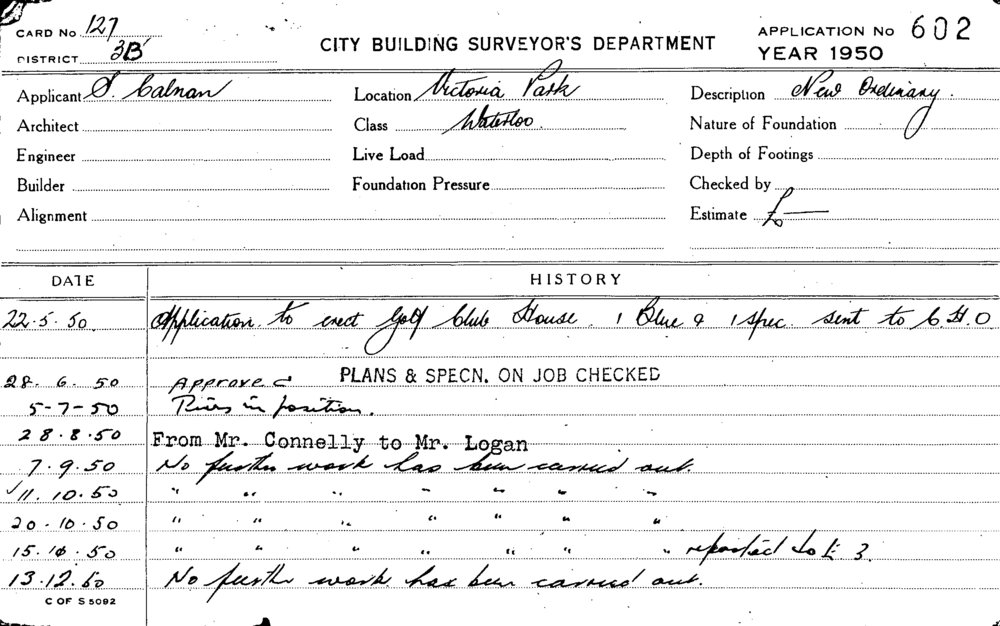 CARD No 127
DISTRICT 3B
CITY BUILDING SURVEYOR'S DEPARTMENT
APPLICATION No 602
YEAR 1950
Applicant S. Calnan
Location Victoria Park
Description New Ordinary.
Architect
Class Waterloo
Nature of Foundation
Engineer
Live Load
Depth of Footings
Builder
Foundation Pressure
Checked by
Alignment
Estimate £—
DATE HISTORY
22.5.50 Application to erect Golf Club House. 1 Blue & 1 spec. sent to C.H.O
28.6.50 Approved PLANS & SPECN. ON JOB CHECKED
5-7-50 Piers in position.
28.8.50 From Mr. Connelly to Mr. Logan
7.9.50 No further work has been carried out.
11.10.50 " " " " " " "
20-10-50 " " " " " " "
15.10.50 " " " " " " " reported to 3.
13.12.50 No further work has been carried out.
C OF S 5092